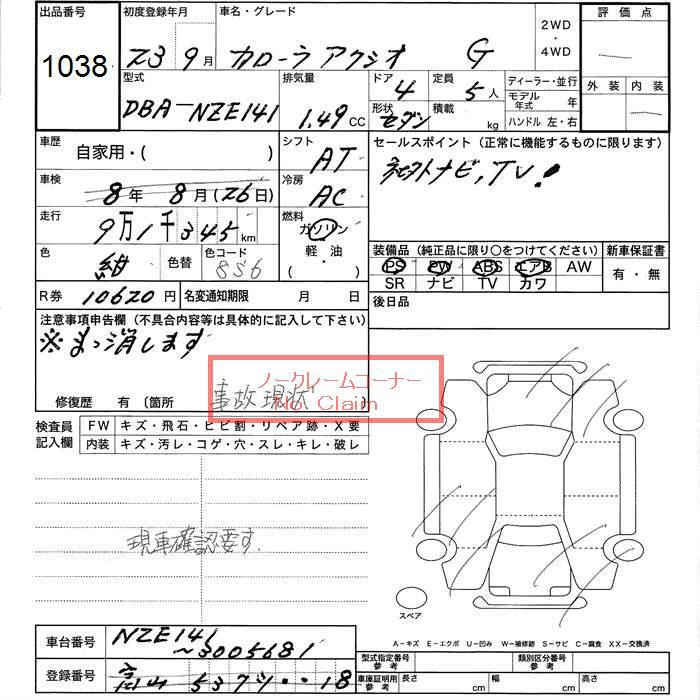 出品番号
1038
初度登録年月
23 9月
車名・グレード
カローラ アクシオ G
2WD
・
4WD
評価点
外装 内装
型式
DBA-NZE141
排気量
1.49 CC
ドア
4
形状
セダン
定員
5人
積載
kg
ディーラー・並行
モデル
年式 年
ハンドル 左・右
車歴
自家用・( )
シフト
AT
セールスポイント (正常に機能するものに限ります)
社外ナビ,TV!
車検
8年 8月(26日)
冷房
AC
走行
9万1千345km
燃料
ガソリン
軽・油
( )
色
紺
色替
色コード
8S6
装備品 (純正品に限り○をつけてください)
PS PW ABS エアB AW
SR ナビ TV カワ
新車保証書
有・無
R券 10620円
名変通知期限 月 日
後日品
注意事項申告欄 (不具合内容等は具体的に記入して下さい)
※まっ消します
ノークレームコーナー
No Claim
修復歴 有 〔箇所 事故現状 〕
検査員
記入欄
FW キズ・飛石・ヒビ割・リペア跡・X要
内装 キズ・汚レ・コゲ・穴・スレ・キレ・破レ
現車確認要す.
スペア
A−キズ E−エクボ U−凹み W−補修跡 S−サビ C−腐食 XX−交換済
車台番号
NZE141
~3005681
登録番号
537 ・・18
型式指定番号
参考
類別区分番号
参考
車庫証明用
参考
長さ cm
幅 cm
高さ cm